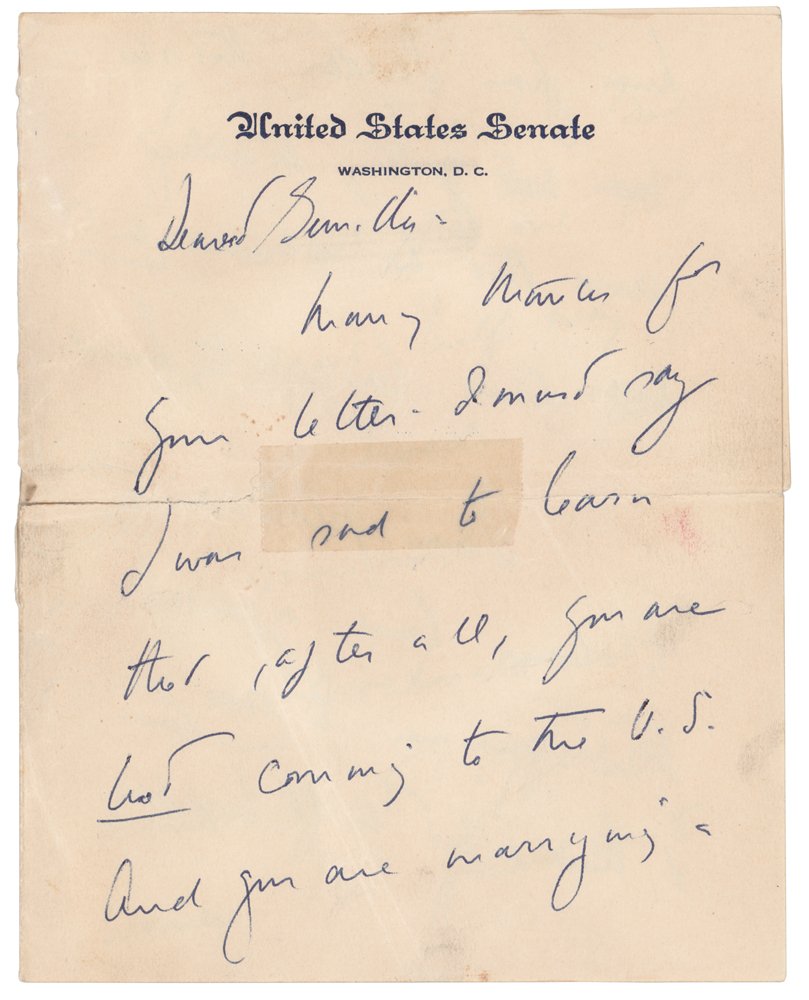 United States Senate
WASHINGTON, D. C.
Dearest Gunilla -
Many thanks for
your letter - I must say
I was sad to learn
that, after all, you are
not coming to the U.S.
And you are marrying a